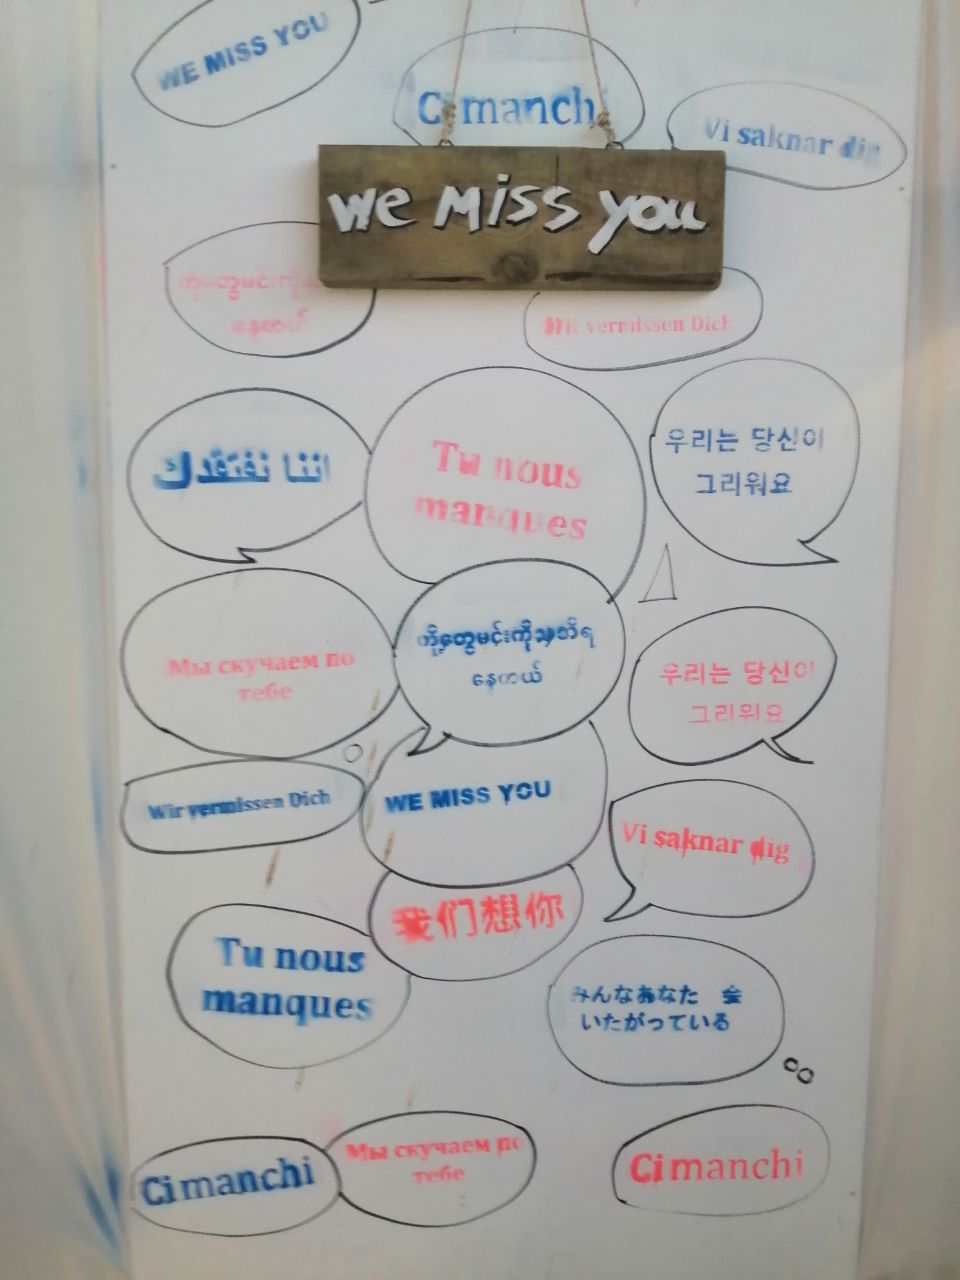 WE MISS YOU
Ci manchi
Vi saknar dig
We Miss you
နေတယ်
Wir vermissen Dich
اننا نفتقدك
Tu nous
manques
우리는 당신이
그리워요
Мы скучаем по
тебе
တို့တွေမင်းကိုသတိရ
နေတယ်
우리는 당신이
그리워요
Wir vermissen Dich
WE MISS YOU
Vi saknar dig
我们想你
Tu nous
manques
みんなあなた 会
いたがっている
Ci manchi
Мы скучаем по
тебе
Ci manchi